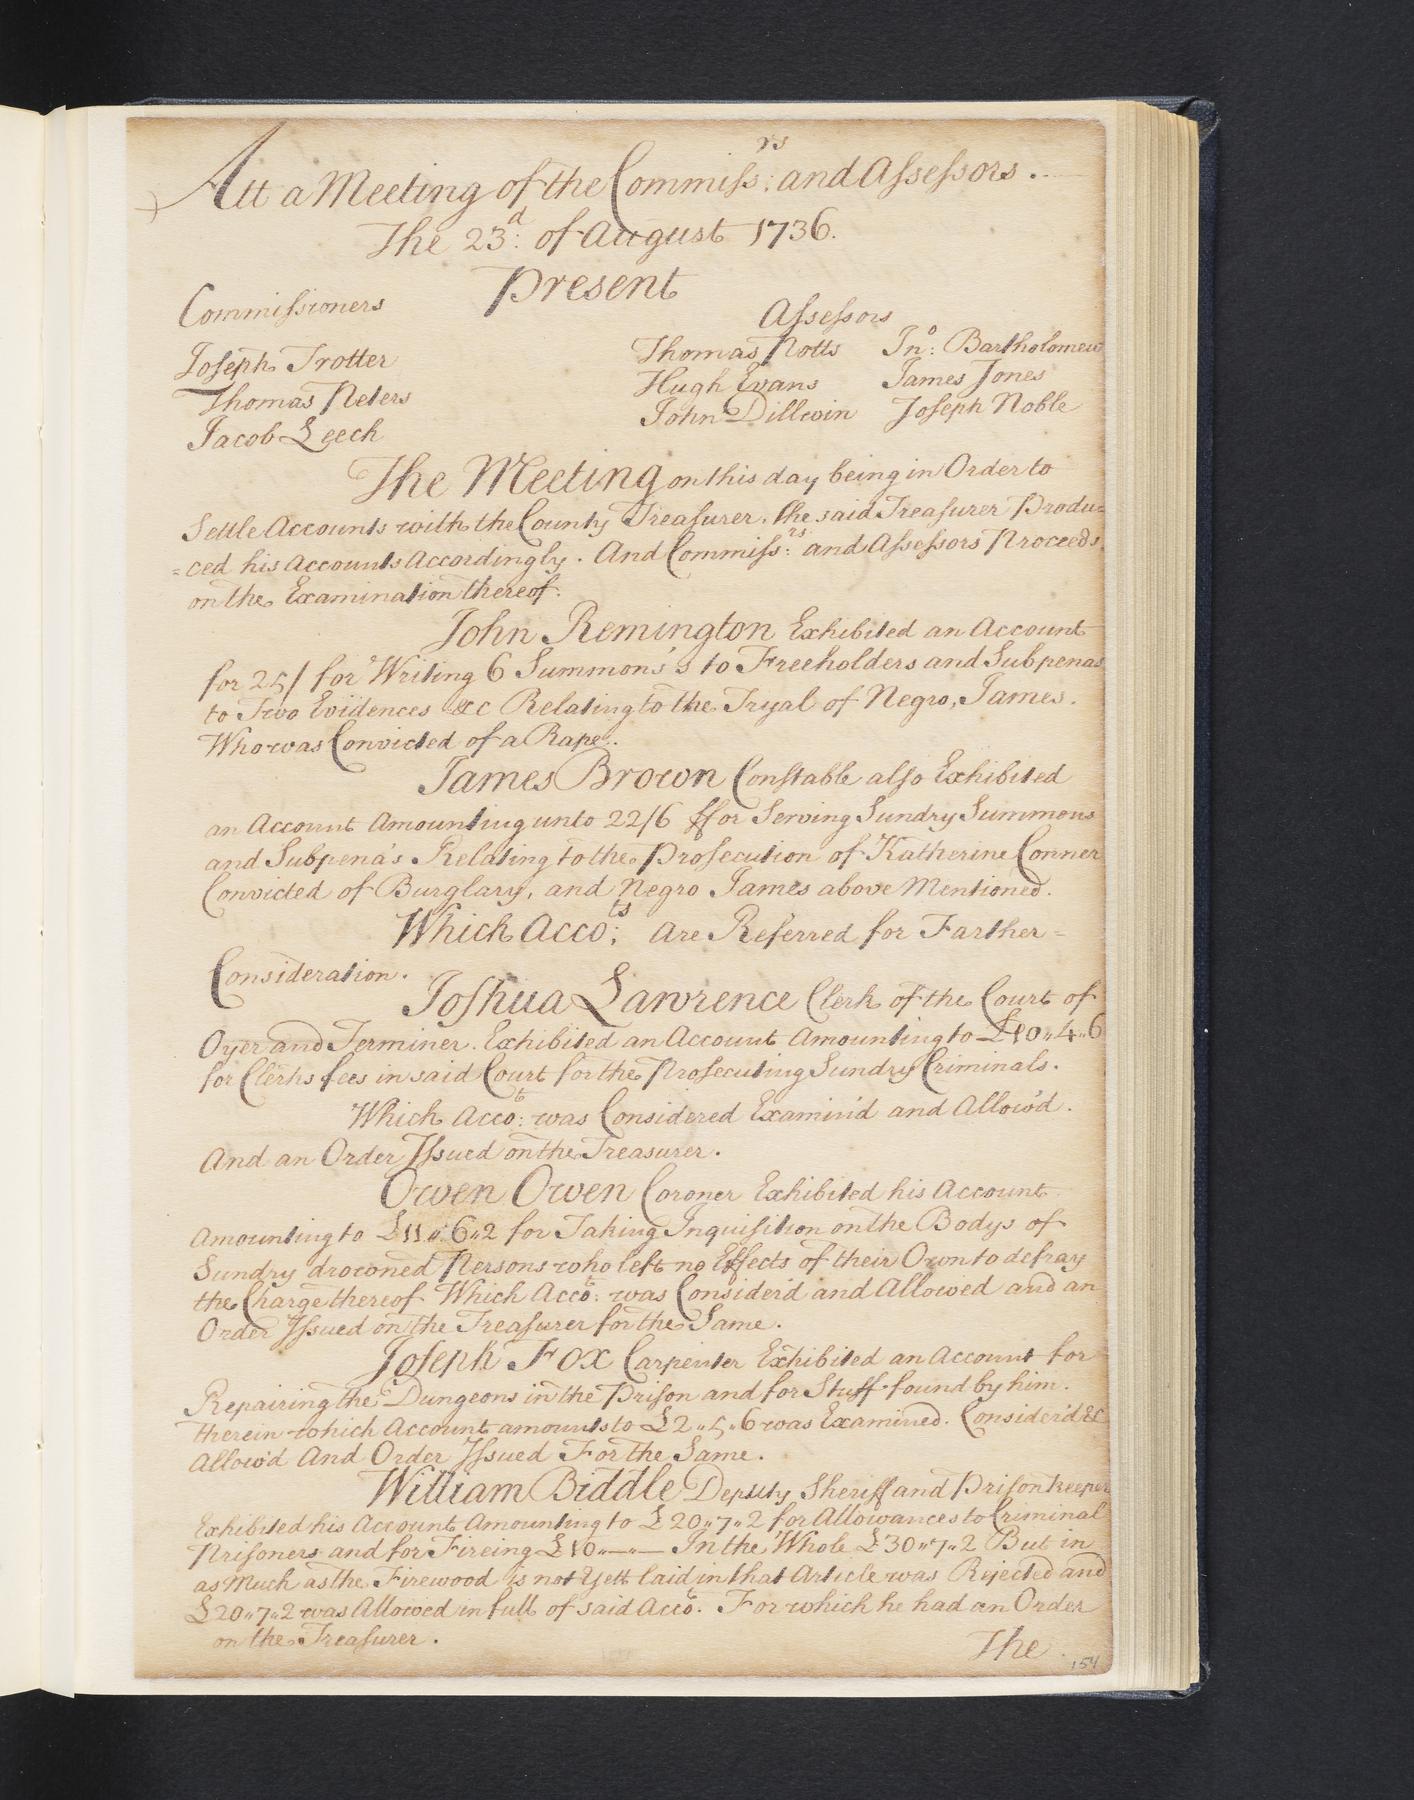 Att a Meeting of the Commiss:rs and Assessors.
The 23:d of August 1736.
Present
Commissioners
Assessors
Joseph Trotter
Thomas Peters
Jacob Leech
Thomas Potts Jno: Bartholomew
Hugh Evans James Jones
John Dillwin Joseph Noble
The Meeting on this day being in Order to
Settle Accounts with the County Treasurer. the said Treasurer Produ=
=ced his Accounts Accordingly. And Commiss:rs and Assessors Proceeds
on the Examination thereof.
John Remington Exhibited an Account
for 25/ for Writing 6 Summons's to Freeholders and Subpenas
to Two Evidences &c Relating to the Tryal of Negro, James.
Who was Convicted of a Rape.
James Brown Constable also Exhibited
an Account Amounting unto 22/6 ffor Serving Sundry Summons
and Subpena's Relating to the Prosecution of Katherine Conner
Convicted of Burglary, and Negro James above Mentioned.
Which Acco:ts are Referred for Farther=
Consideration.
Joshua Lawrence Clerk of the Court of
Oyer and Terminer. Exhibited an Account Amounting to £10,,4,,6
for Clerks fees in said Court for the Prosecuting Sundry Criminals.
Which Acco:t was Considered Examin'd and Allow'd.
And an Order Issued on the Treasurer.
Owen Owen Coroner Exhibited his Account
Amounting to £11,,6,,2 for Taking Inquisition on the Bodys of
Sundry drowned Persons who left no Effects of their Own to defray
the Charge thereof Which Acco:t was Consider'd and Allowed and an
Order Issued on the Treasurer for the Same.
Joseph Fox Carpenter Exhibited an Account for
Repairing the Dungeons in the Prison and for Stuff found by him.
therein which Account amounts to £2,,5,,6 was Examined. Consider'd &c
Allow'd And Order Issued For the Same.
William Biddle Deputy Sheriff and Prison keeper
Exhibited his Account Amounting to £20,,7,,2 for Allowances to Criminal
Prisoners and for Fireing £10,,—,,— In the Whole £30,,7,,2 But in
as Much as the Firewood is not Yett laid in that Article was Rejected and
£20,,7,,2 was Allowed in full of said Acco.t For which he had an Order
on the Treasurer.
The
154